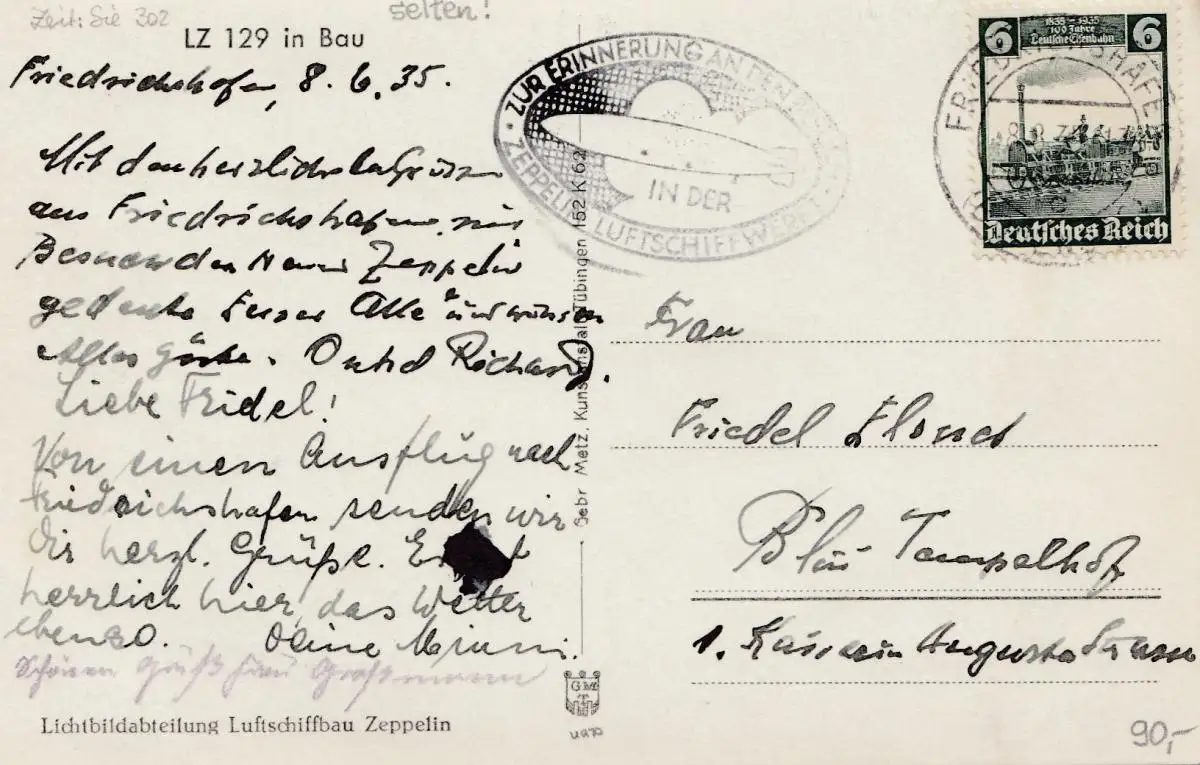 Zeit: Sie 302
selten!
LZ 129 in Bau
Friedrichshafen, 8. 6. 35.
Mit den herzlichsten Grüssen
aus Friedrichshafen
Zeppelin
gedenke Alle und
Alles Gute. Onkel Richard.
Liebe Fridel!
Von einen Ausflug nach
Friedrichshafen senden wir
dir herzl. Grüße. Es
herrlich hier, das Wetter
ebenso. Deine
Schönen Gruß Frau
Lichtbildabteilung Luftschiffbau Zeppelin
ZUR ERINNERUNG AN DEN
IN DER
ZEPPELIN LUFTSCHIFFWERFT
Gebr Metz, Kunstanstalt Tübingen 152 K 62
GMT
FRIEDRICHSHAFEN
6 1835-1935 6
100 Jahre
Deutsche Eisenbahn
Deutsches Reich
Frau
Friedel
Tempelhof
1. Kaiserin Augusta Strasse
90,-